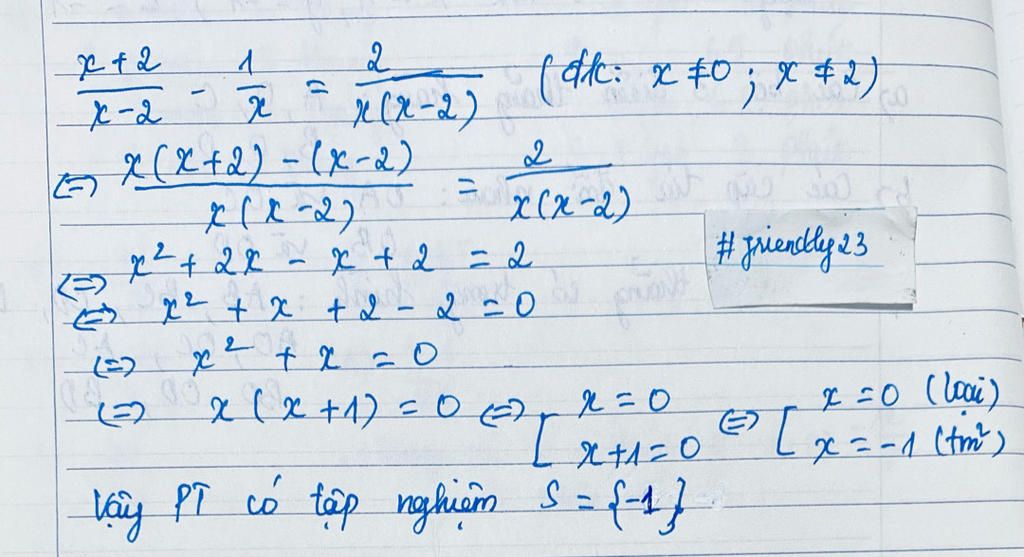 x+2/x-2 - 1/x = 2/x(x-2) (đk: x ≠ 0 ; x ≠ 2)
⇔ x(x+2) - (x-2)/x(x-2) = 2/x(x-2)
# friendly23
⇔ x² + 2x - x + 2 = 2
⇔ x² + x + 2 - 2 = 0
⇔ x² + x = 0
⇔ x(x+1) = 0 ⇔ [ x = 0 ; x+1 = 0 ⇔ [ x = 0 (loại) ; x = -1 (tm²)
Vậy PT có tập nghiệm S = {-1}